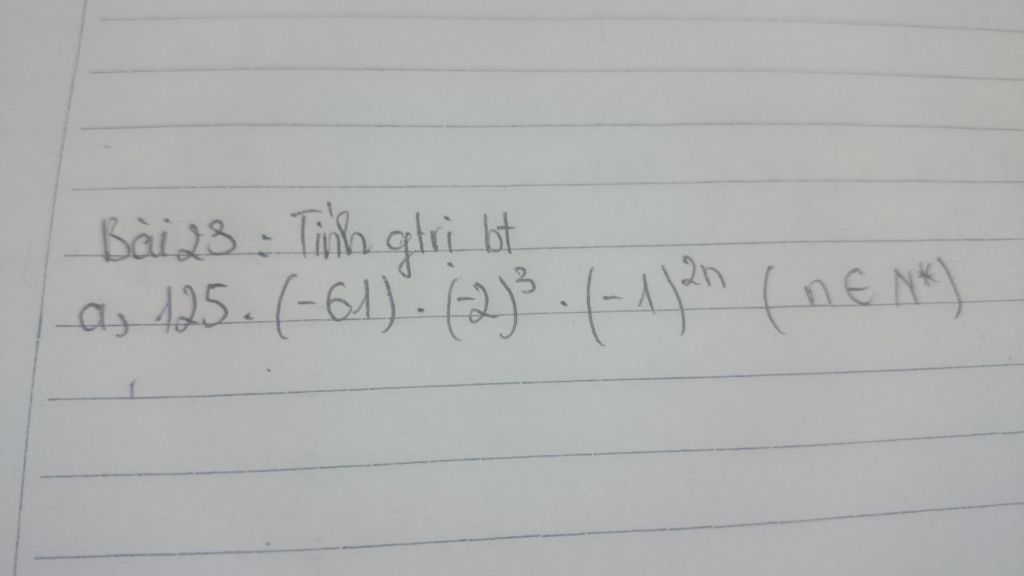 Bài 23 : Tính gtrị bt
a, 125 . (-61) . (-2)³ . (-1)²ⁿ ( n ∈ N*)